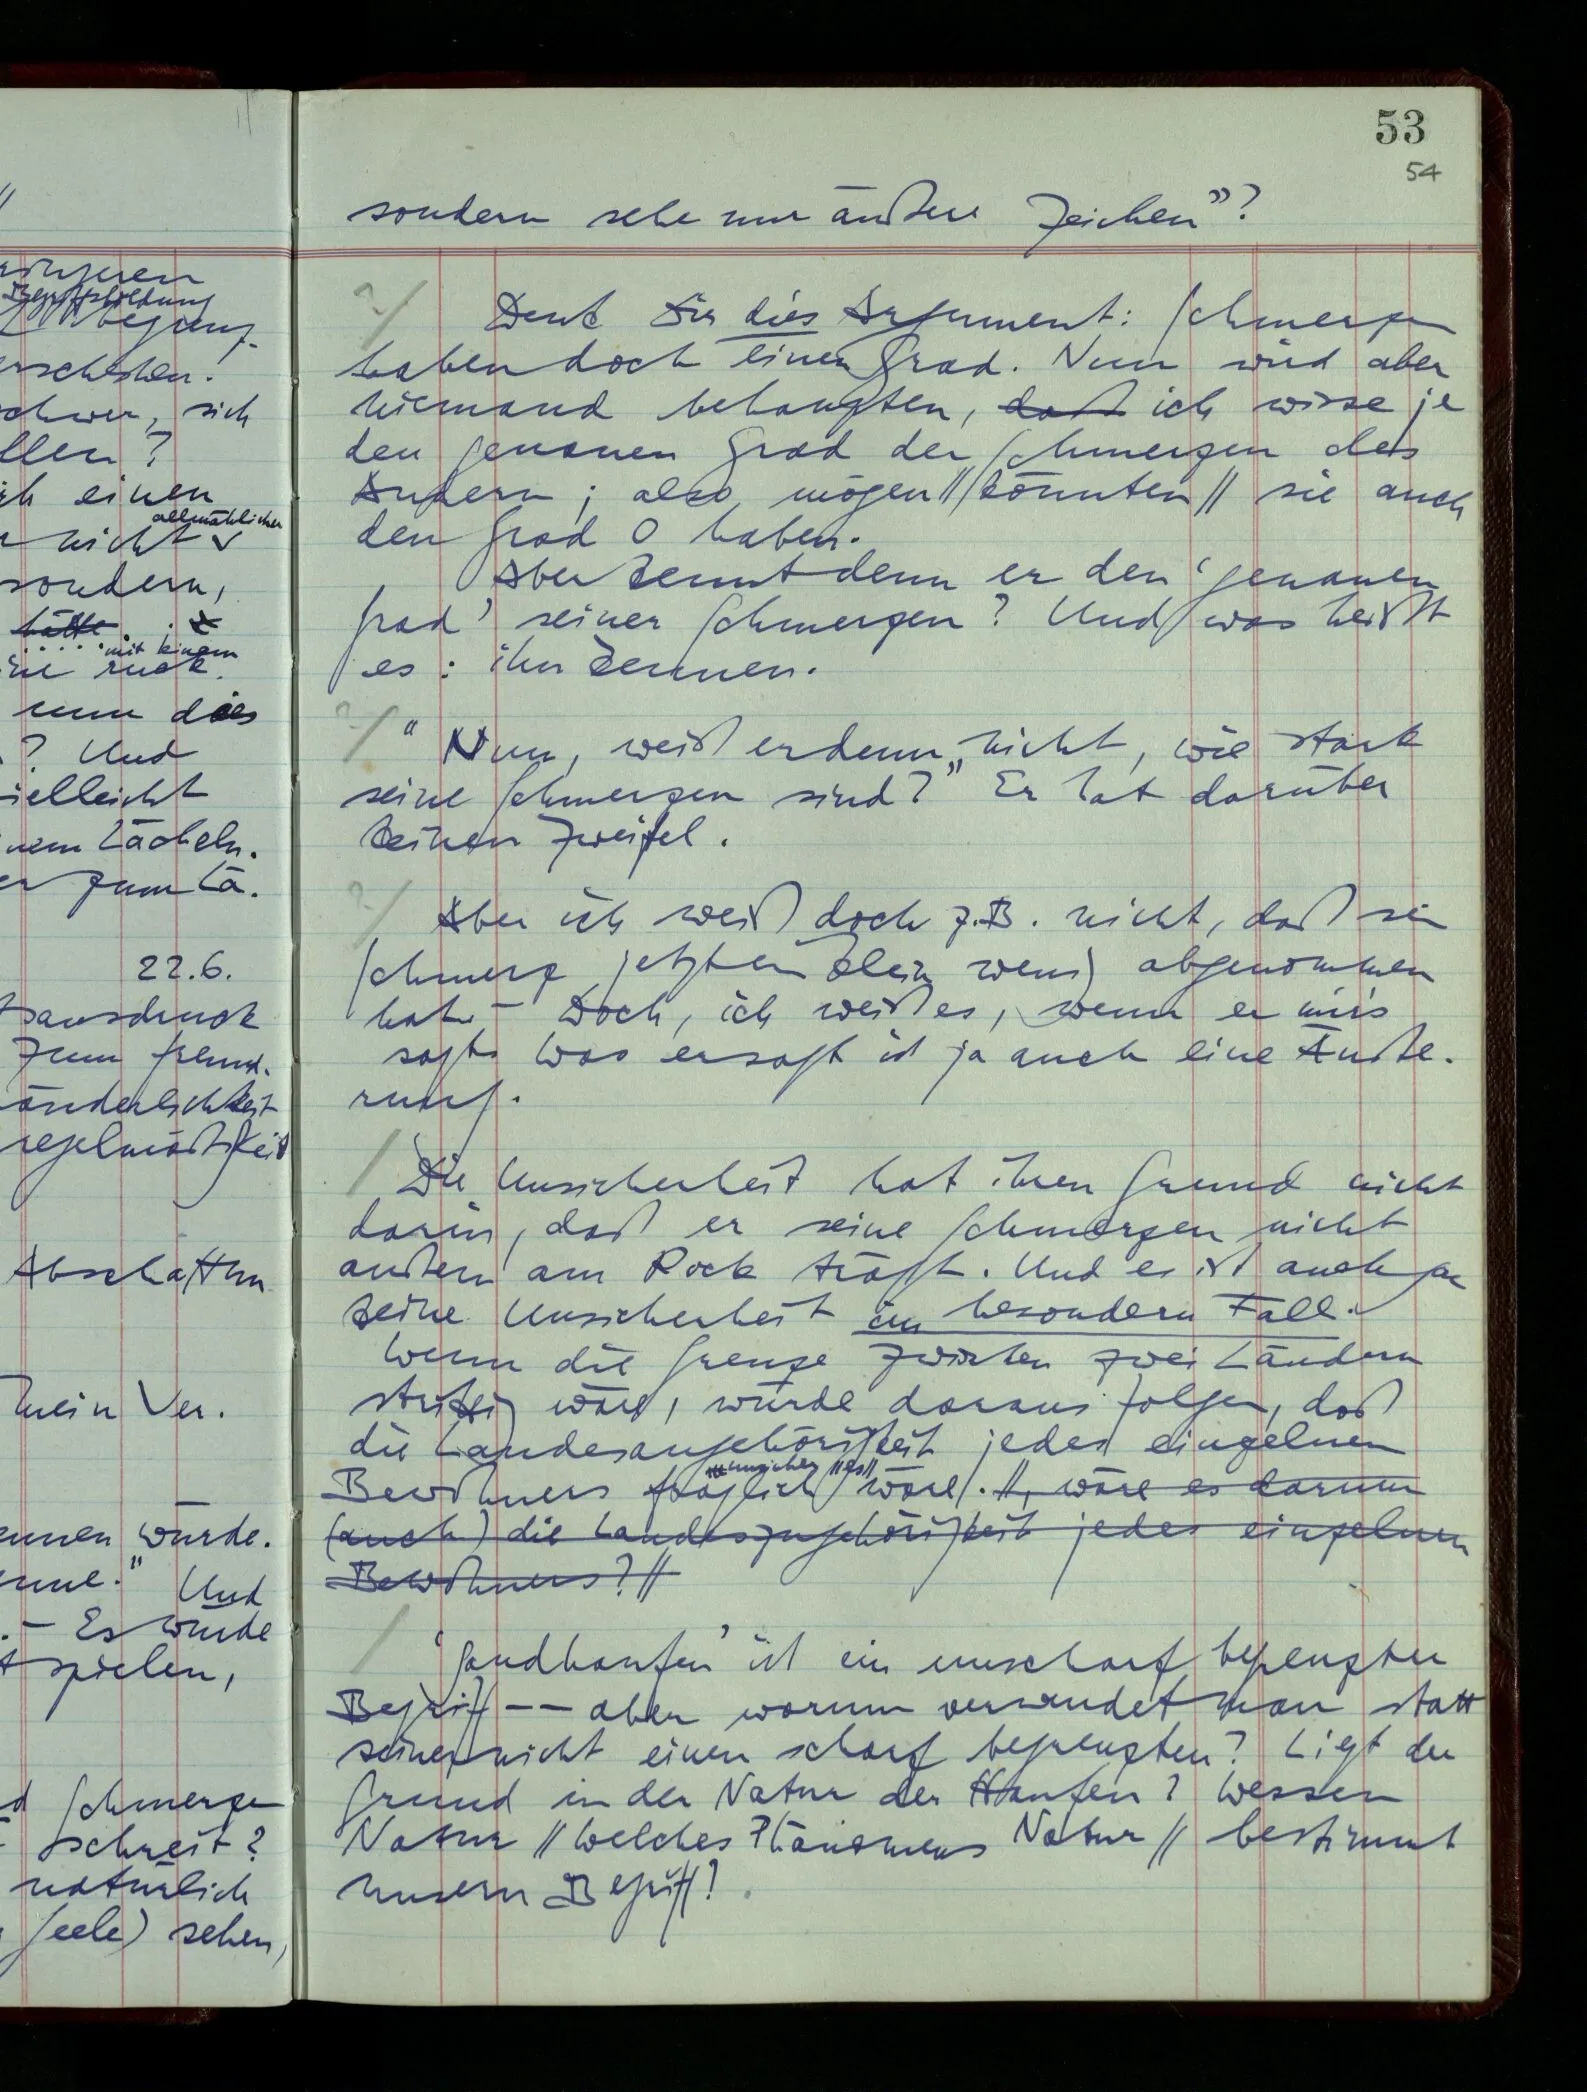 53
54
sondern sehe nur äußere Zeichen"?
?/ Denk Dir dies Argument: Schmerzen
haben doch einen Grad. Nun wird aber
niemand behaupten, daß ich wisse je
den genauen Grad der Schmerzen des
Andern; also mögen // könnten // sie auch
den Grad 0 haben.
Aber kennt denn er den 'genauen
Grad' seiner Schmerzen? Und was heißt
es: ihn kennen.
?/ "Nun, weiß er denn nicht, wie stark
seine Schmerzen sind?" Er hat darüber
keinen Zweifel.
?/ Aber ich weiß doch z.B. nicht, daß sein
Schmerz jetzt ein klein wenig abgenommen
hat. – Doch, ich weiß es, wenn er mir's
sagt. Was er sagt ist ja auch eine Äuße-
rung.
/ Die Unsicherheit hat ihren Grund nicht
darin, daß er seine Schmerzen nicht
außen am Rock trägt. Und es ist auch gar
keine Unsicherheit im besondern Fall.
Wenn die Grenze zwischen zwei Ländern
strittig wäre, würde daraus folgen, daß
die Landesangehörigkeit jedes einzelnen
unsicher // es //
Bewohners fraglich wäre. //, wäre es darum
(auch) die Landeszugehörigkeit jedes einzelnen
Bewohners? //
/ 'Sandhaufen' ist ein unscharf begrenzter
Begriff –– aber warum verwendet man statt
seiner nicht einen scharf begrenzten? Liegt der
Grund in der Natur der Haufen? Wessen
Natur // Welches Phänomens Natur // bestimmt
unsern Begriff?
Begriffsbildung
schwer, sich
llen?
ich einen
allmählichen
nicht
sondern,
hätte
mit einem
nun dies
? Und
vielleicht
nem Lächeln.
er zum Lä-
22.6.
sausdruck
zum freund-
änderlichkeit
regelmäßigkeit
Abschatten
mein Ver-
ennen würde.
Und
. – Es würde
spielen,
d Schmerzen
schreit?
natürlich
Seele) sehen,